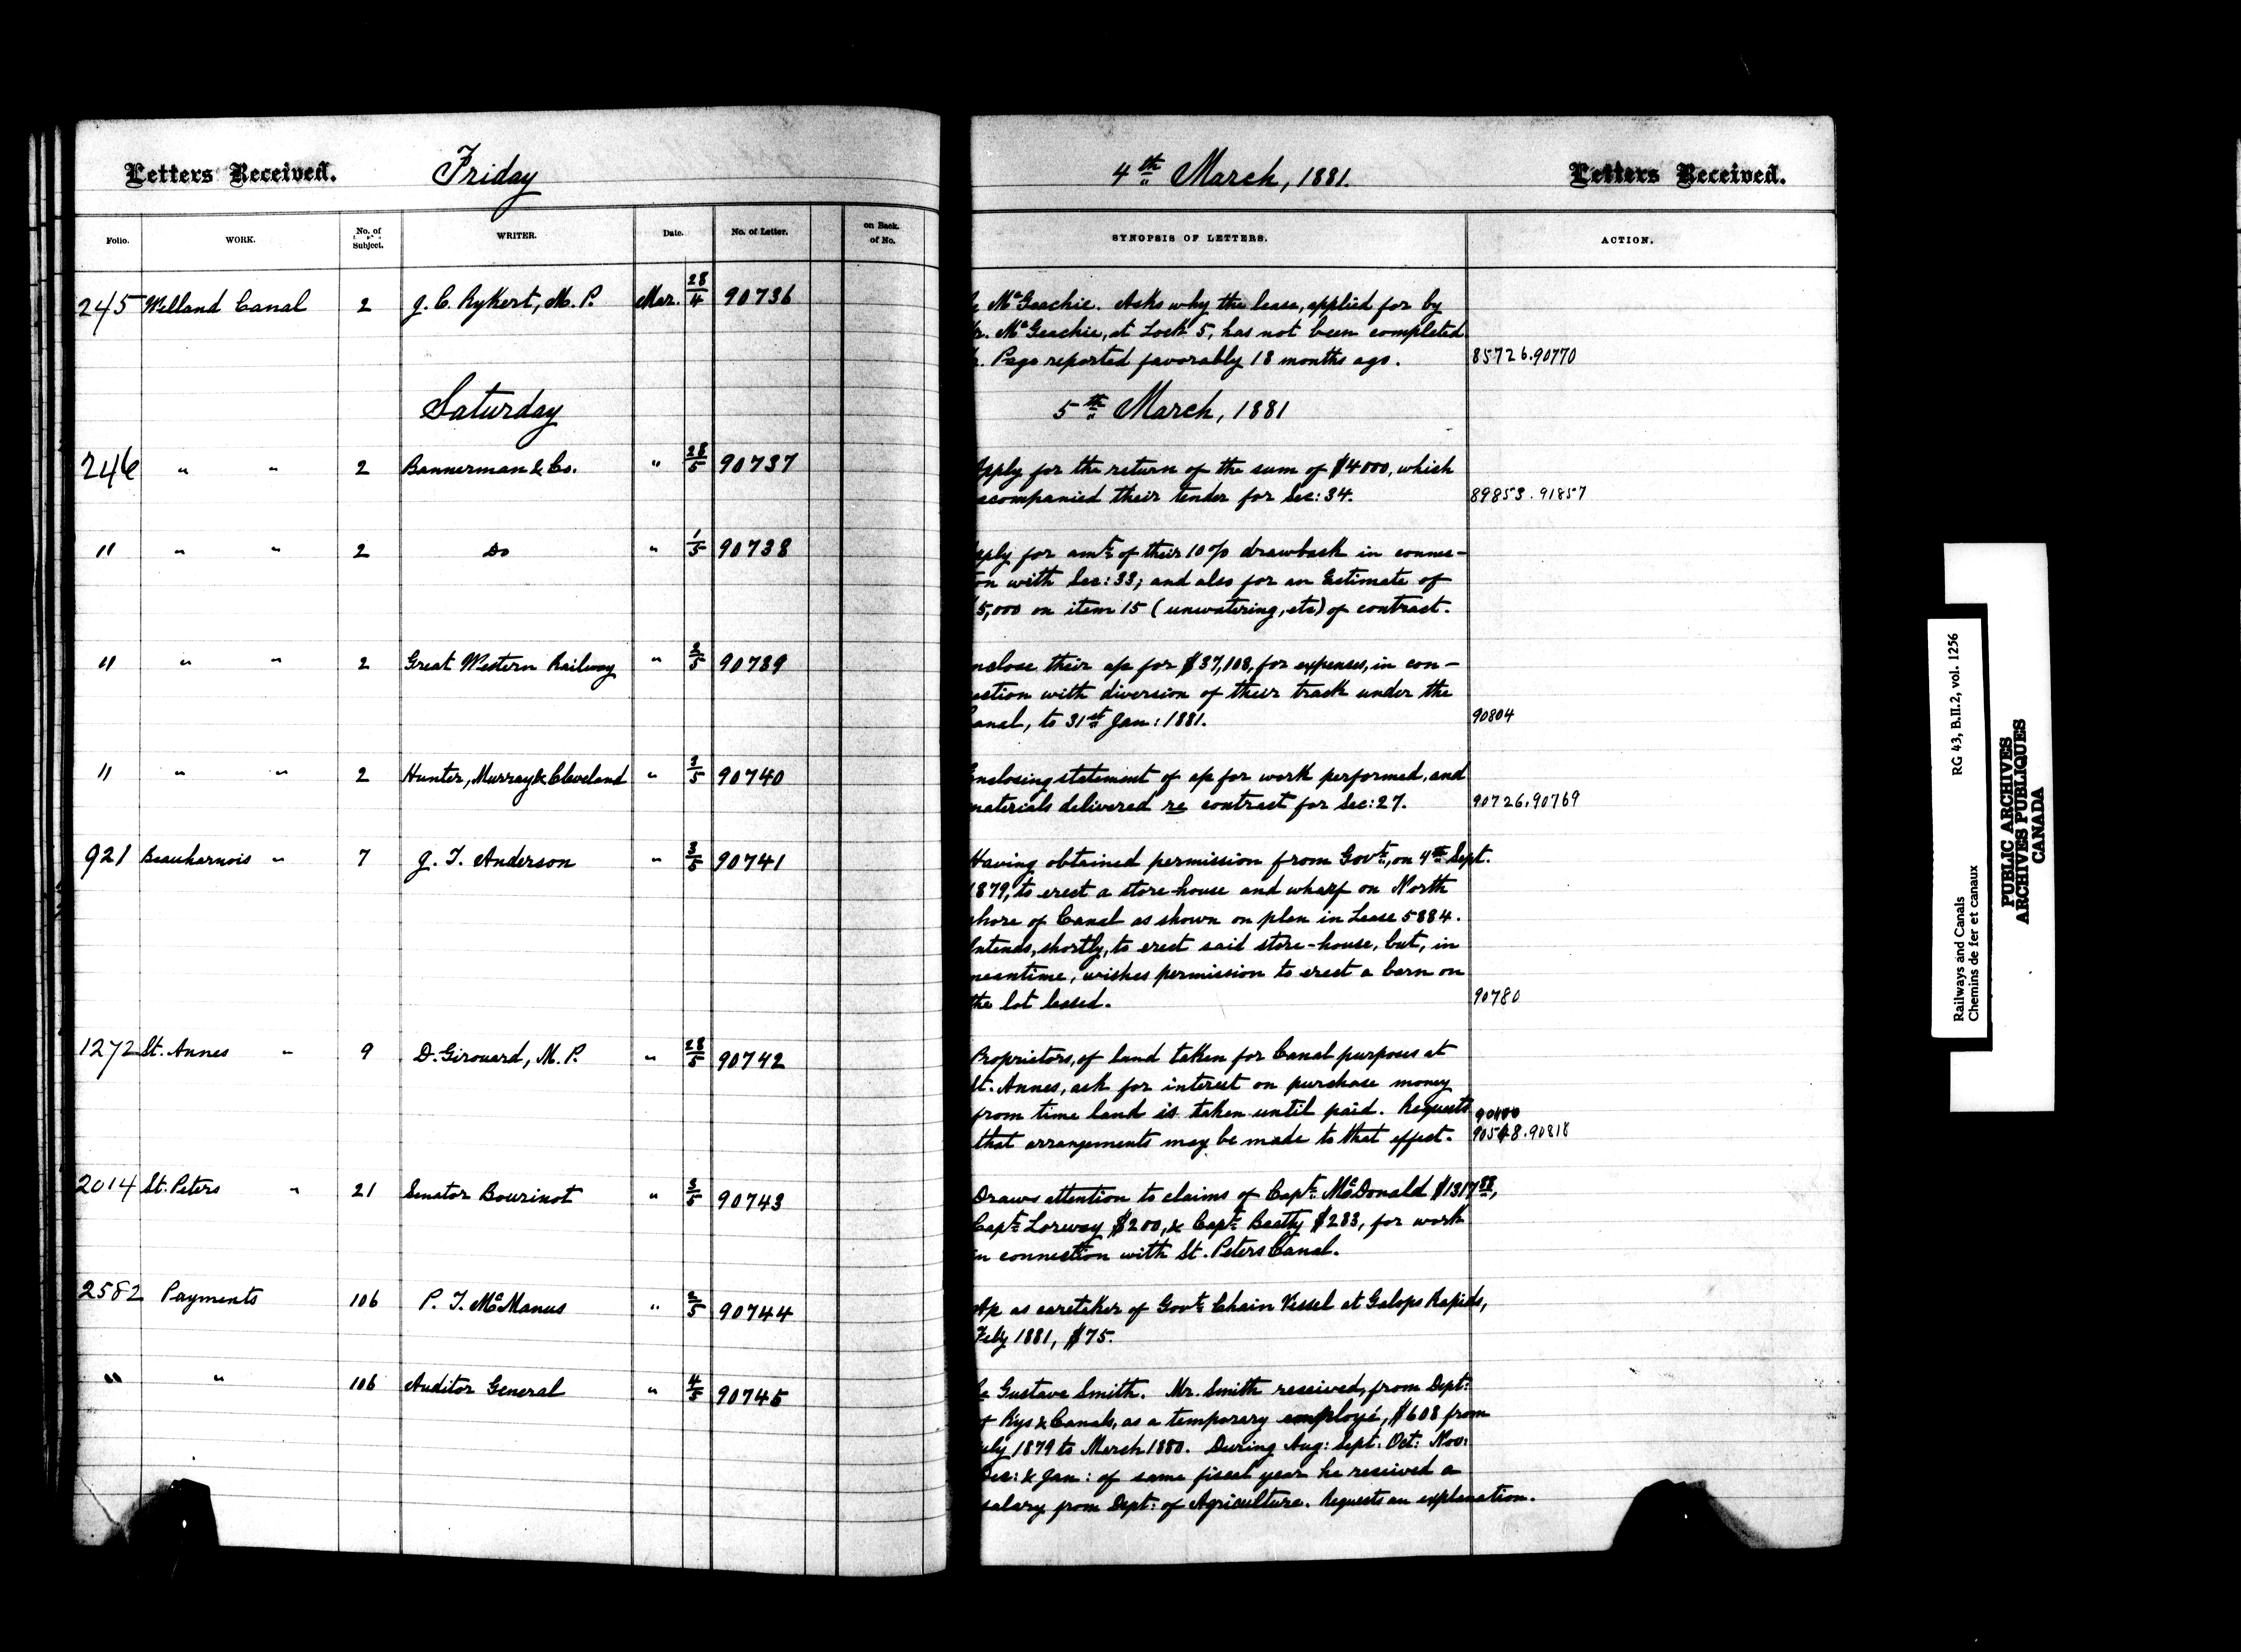 Letters Received. Friday 4th March, 1881. Letters Received.
Folio. WORK. No. of Subject. WRITER. Date. No. of Letter. on Back. of No. SYNOPSIS OF LETTERS. ACTION.
245 Welland Canal 2 J. C. Rykert, M. P. Mar. 28/4 90736
McGeachie. Asks why the lease, applied for by
Mr. McGeachie, at Lock 5, has not been completed
Page reported favorably 18 months ago. 85726.90770
Saturday 5th March, 1881
246 " " 2 Bannerman & Co. " 28/5 90737
Apply for the return of the sum of $4000, which
accompanied their tender for Sec: 34. 89853.91857
" " " 2 Do " 1/5 90738
Apply for amt. of their 10% drawback in connec-
on with Sec: 33; and also for an Estimate of
$5,000 on item 15 (unwatering, etc) of contract.
" " " 2 Great Western Railway " 3/5 90739
nclose their a/c for $37,108, for expenses, in con-
ection with diversion of their track under the
Canal, to 31st Jan: 1881. 90804
" " " 2 Hunter, Murray & Cleveland " 3/5 90740
Enclosing statement of a/c for work performed, and
materials delivered re contract for Sec: 27. 90726.90769
921 Beauharnois " 7 J. T. Anderson " 3/5 90741
Having obtained permission from Govt., on 4th Sept.
1879, to erect a store-house and wharf on North
shore of Canal as shown on plan in Lease 5884.
Intends, shortly, to erect said store-house, but, in
meantime, wishes permission to erect a barn on
the lot leased. 90780
1272 St. Annes " 9 D. Girouard, M. P. " 28/5 90742
Proprietors, of land taken for Canal purposes at
St. Annes, ask for interest on purchase money
from time land is taken until paid. Requests
that arrangements may be made to that effect. 90818
2014 St. Peters " 21 Senator Bourinot " 3/5 90743
Draws attention to claims of Capt. McDonald $1317.88,
Capt. Lorway $200, & Capt. Beatty $283, for work
in connection with St. Peters Canal.
2582 Payments 106 P. J. McManus " 2/5 90744
A/c as caretaker of Govt. Chain Vessel at Galops Rapids,
Feby 1881, $75.
" " 106 Auditor General " 4/5 90745
Gustave Smith. Mr. Smith received, from Dept:
of Rys & Canals, as a temporary employé, $608 from
July 1879 to March 1880. During Aug: Sept: Oct: Nov:
Dec: & Jan: of same fiscal year he received a
salary from Dept: of Agriculture. Requests an explanation.
Railways and Canals RG 43, B.II.2, vol. 1256
Chemins de fer et canaux
PUBLIC ARCHIVES
ARCHIVES PUBLIQUES
CANADA